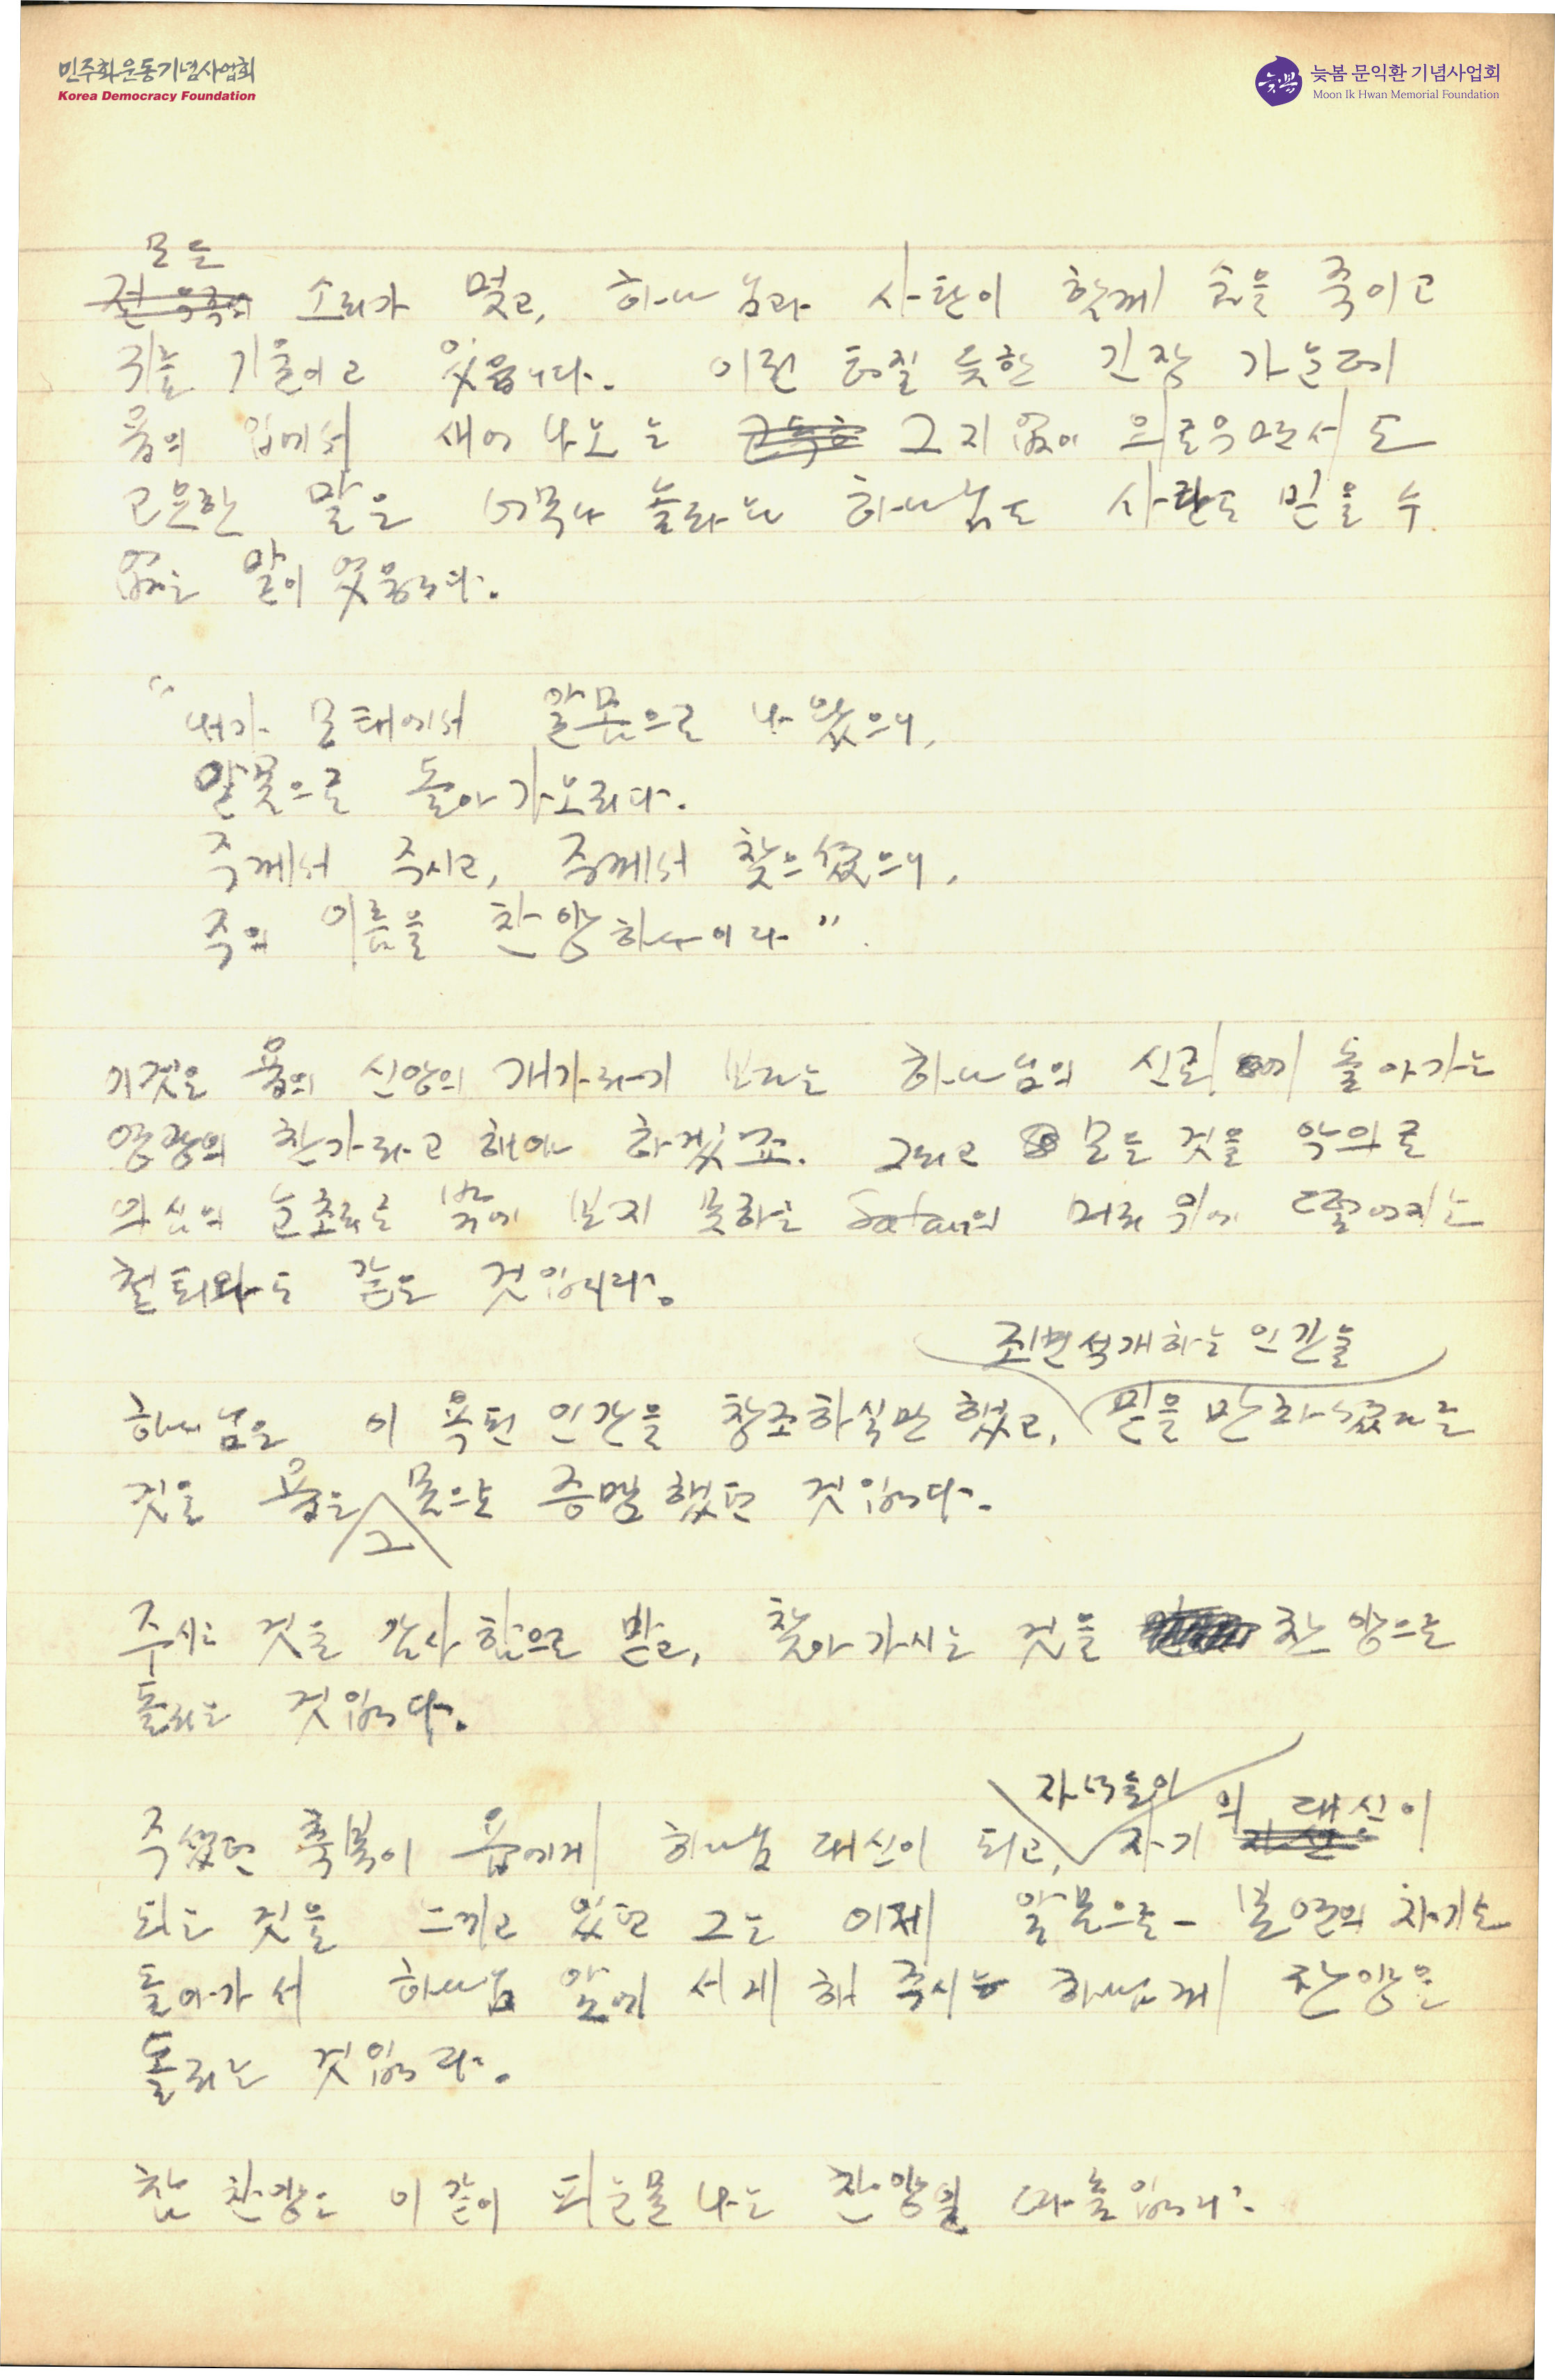 민주화운동기념사업회
Korea Democracy Foundation
늦봄 문익환 기념사업회
Moon Ik Hwan Memorial Foundation
모든
소리가 멎고, 하나님과 사탄이 함께 숨을 죽이고
귀를 기울이고 있읍니다. 이런 터질 듯한 긴장 가운데
욥의 입에서 새어 나오는 그지없이 외로우면서도
고요한 말은 너무나 놀라와 하나님도 사탄도 믿을 수
없는 말이었읍니다.
"내가 모태에서 알몸으로 나왔으니,
알몸으로 돌아가오리다.
주께서 주시고, 주께서 찾으셨으니,
주의 이름을 찬양하나이다".
이것은 욥의 신앙의 개가라기 보다는 하나님의 신뢰에 돌아가는
영광의 찬가라고 해야 하겠죠. 그리고 모든 것을 악의로
의심의 눈초리로 밖에 보지 못하는 Satan의 머리 위에 떨어지는
철퇴와도 같은 것입니다.
조변석개하는 인간을
하나님은 이 욕된 인간을 창조하실만 했고, 믿을 만 하셨다는
것을 욥은 몸으로 증명했던 것입니다.
그
주시는 것을 감사함으로 받고, 찾아가시는 것을 찬양으로
돌리는 것입니다.
자녀들이 의 대신이
주셨던 축복이 욥에게 하나님 대신이 되고, 자기
되는 것을 느끼고 있던 그는 이제 알몸으로 - 본연의 자기로
돌아가서 하나님 앞에 서게 해 주시는 하나님께 찬양을
돌리는 것입니다.
참 찬양은 이같이 피눈물 나는 찬양일 따름입니다.